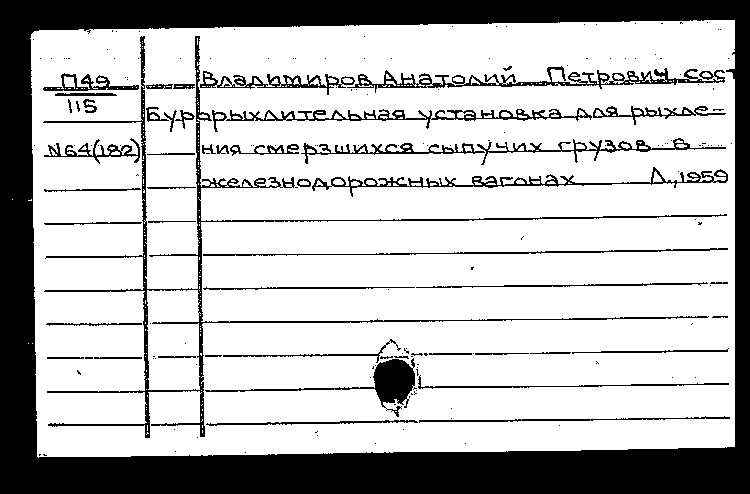 П49
115
N64(182)
Владимиров, Анатолий Петрович, сост
Бурорыхлительная установка для рыхле-
ния смерзшихся сыпучих грузов в
железнодорожных вагонах Л., 1959